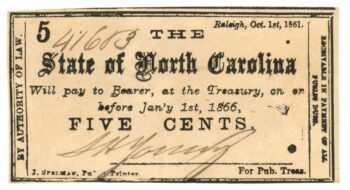 Raleigh, Oct. 1st, 1861.
5
41683
THE
State of North Carolina
Will pay to Bearer, at the Treasury, on or
before Jan'y 1st, 1866,
FIVE CENTS.
J. SPELMAN, Printer.
For Pub. Treas.
BY AUTHORITY OF LAW.
RECEIVABLE IN PAYMENT OF ALL
PUBLIC DUES.